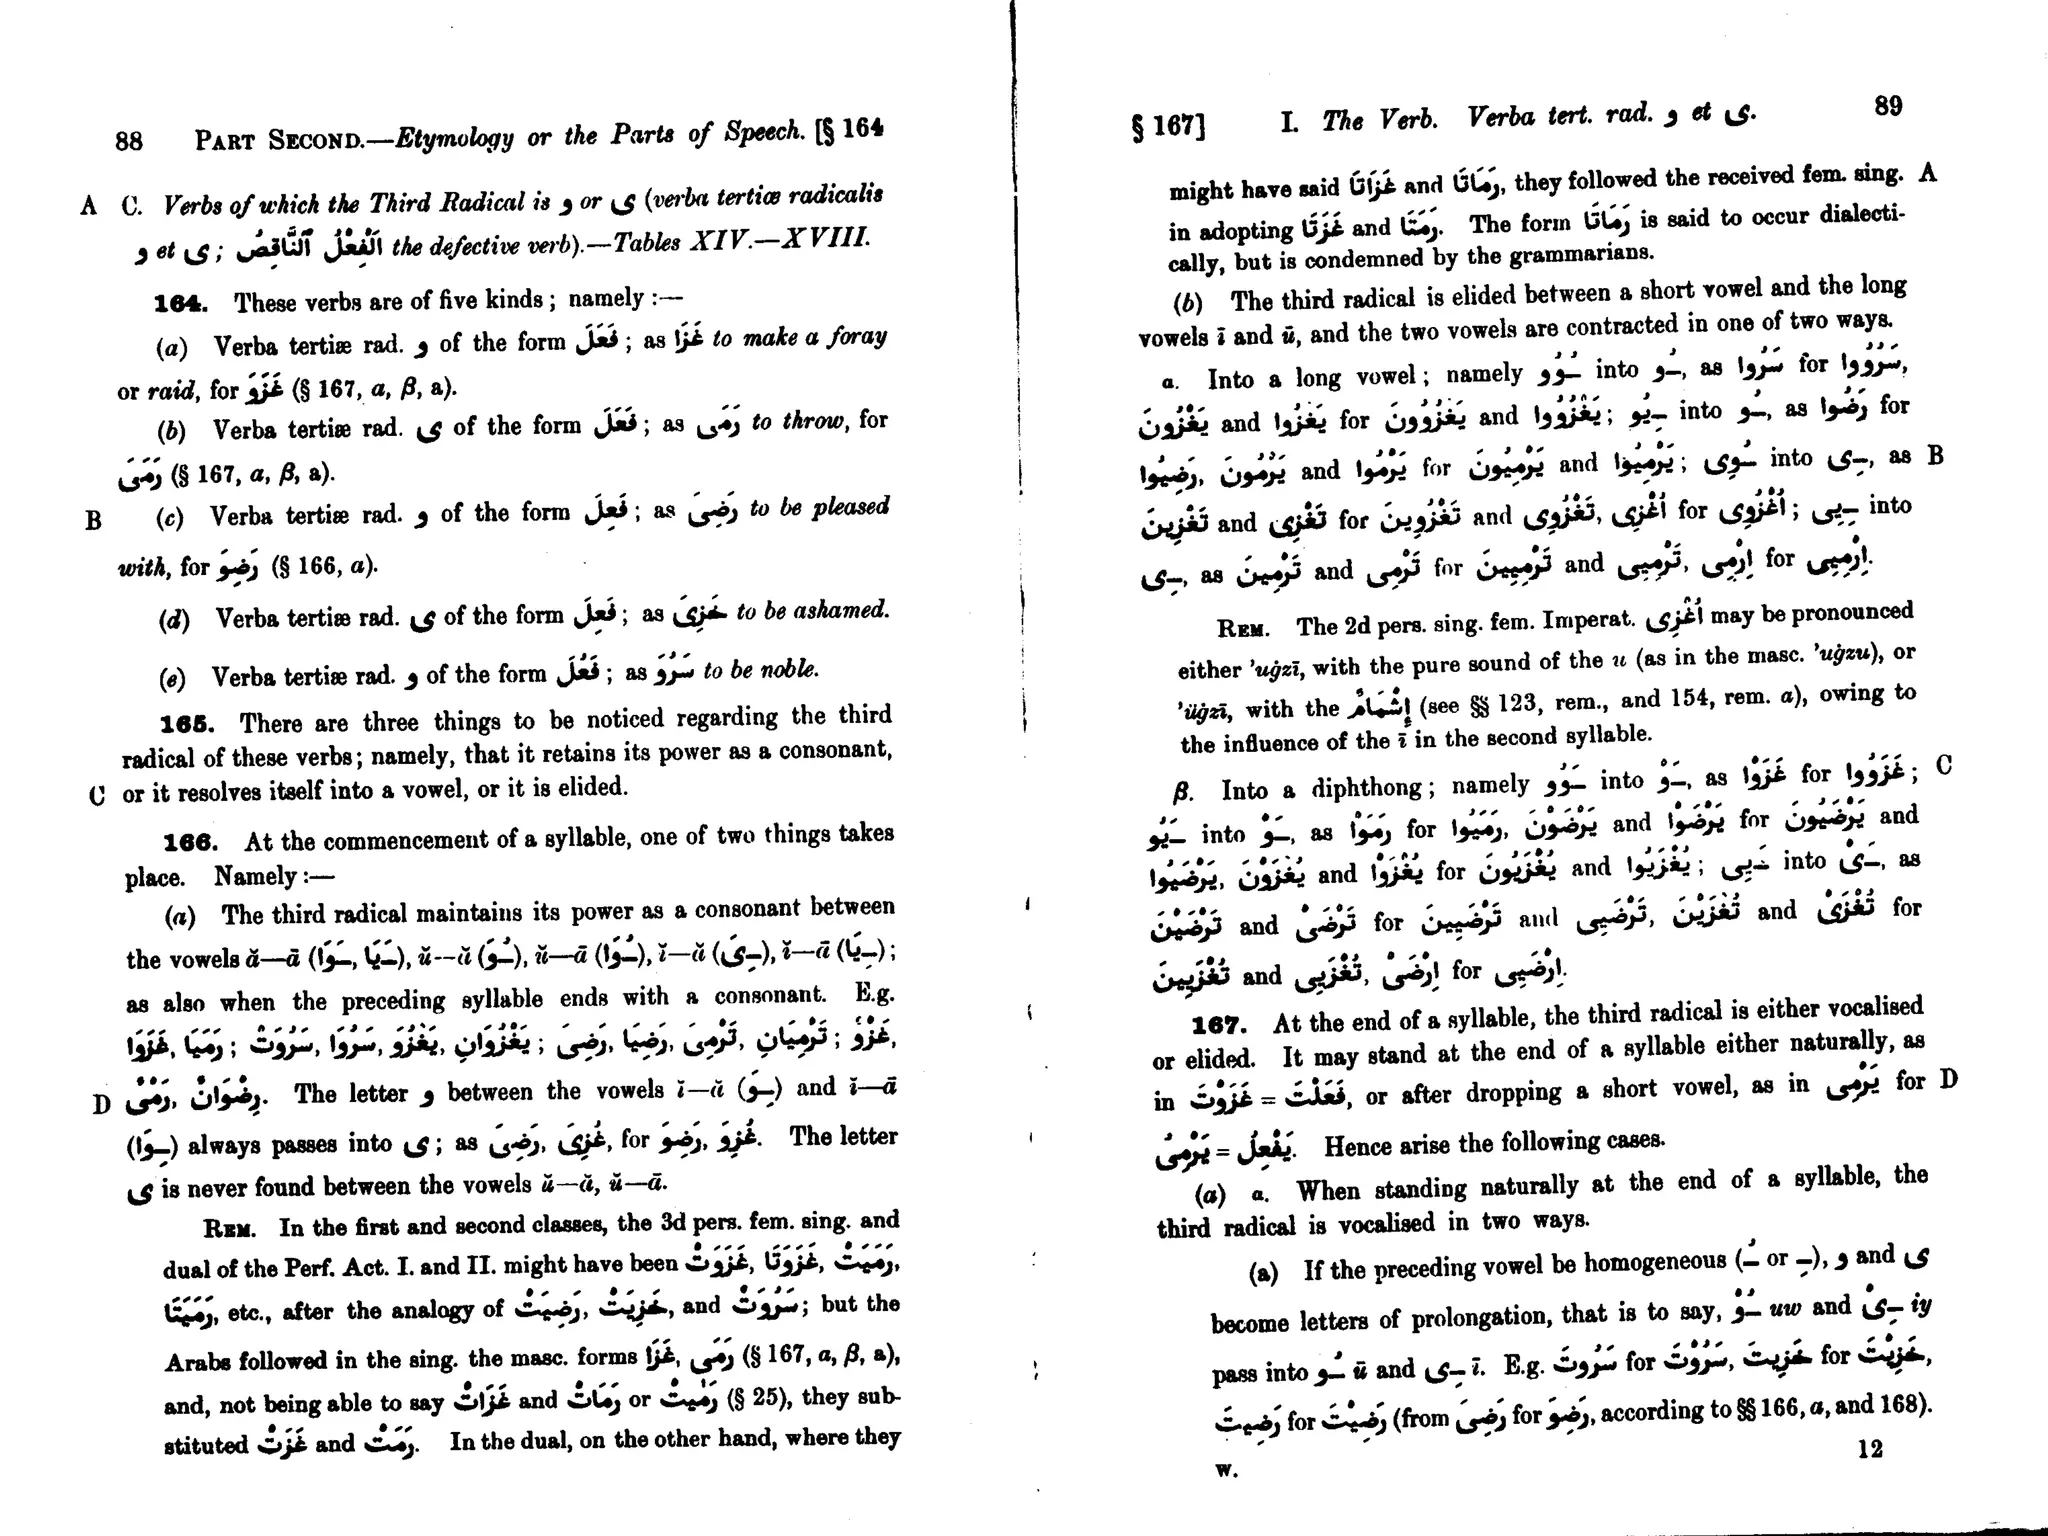 88 PART SECOND.—Etymology or the Parts of Speech. [§ 164
A C. Verbs of which the Third Radical is و or ى (verba tertiæ radicalis
و et ى ; اَلْفِعْلُ ٱلنَّاقِصُ the defective verb).—Tables XIV.—XVIII.
164. These verbs are of five kinds ; namely :—
(a) Verba tertiæ rad. و of the form فَعَلَ ; as غَزَا to make a foray
or raid, for غَزَوَ (§ 167, a, β, a).
(b) Verba tertiæ rad. ى of the form فَعَلَ ; as رَمَى to throw, for
رَمَىَ (§ 167, a, β, a).
B (c) Verba tertiæ rad. و of the form فَعِلَ ; as رَضِىَ to be pleased
with, for رَضِوَ (§ 166, a).
(d) Verba tertiæ rad. ى of the form فَعِلَ ; as خَزِىَ to be ashamed.
(e) Verba tertiæ rad. و of the form فَعُلَ ; as سَرُوَ to be noble.
165. There are three things to be noticed regarding the third
radical of these verbs; namely, that it retains its power as a consonant,
C or it resolves itself into a vowel, or it is elided.
166. At the commencement of a syllable, one of two things takes
place. Namely :—
(a) The third radical maintains its power as a consonant between
the vowels ă—ā (ـَوَا, ـَيَا), ŭ—ă (ـُوَ), ŭ—ā (ـُوَا), ĭ—ă (ـِىَ), ĭ—ā (ـِيَا) ;
as also when the preceding syllable ends with a consonant. E.g.
غَزَوَا, رَمَيَا ; سَرُوَتْ, سَرُوَا, يَغْزُوَ, يَغْزُوَانِ ; رَضِىَ, رَضِيَا, تَرْمِىَ, تَرْمِيَانِ ; غَزْوٌ,
D رَمْىٌ, رِضْوَانٌ. The letter و between the vowels ĭ—ă (ـِوَ) and ĭ—ā
(ـِوَا) always passes into ى ; as رَضِىَ, غُزِىَ, for رَضِوَ, غُزِوَ. The letter
ى is never found between the vowels ŭ—ă, ŭ—ā.
REM. In the first and second classes, the 3d pers. fem. sing. and
dual of the Perf. Act. I. and II. might have been غَزَوَتْ, غَزَوَتَا, رَمَيَتْ,
رَمَيَتَا, etc., after the analogy of رَضِيَتْ, خَزِيَتْ, and سَرُوَتْ ; but the
Arabs followed in the sing. the masc. forms غَزَا, رَمَى (§ 167, a, β, a),
and, not being able to say غَزَاتْ and رَمَاتْ or رَمٰيتْ (§ 25), they sub-
stituted غَزَتْ and رَمَتْ. In the dual, on the other hand, where they
§ 167] I. The Verb. Verba tert. rad. و et ى. 89
might have said غَزَاتَا and رَمَاتَا, they followed the received fem. sing. A
in adopting غَزَتَا and رَمَتَا. The form رَمَاتَا is said to occur dialecti-
cally, but is condemned by the grammarians.
(b) The third radical is elided between a short vowel and the long
vowels ī and ū, and the two vowels are contracted in one of two ways.
α. Into a long vowel ; namely ـُوُو into ـُو, as سَرُوا for سَرُوُوا,
يَغْزُونَ and يَغْزُوا for يَغْزُوُونَ and يَغْزُوُوا ; ـِيُو into ـُو, as رَضُوا for
رَضِيُوا, يَرْمُونَ and يَرْمُوا for يَرْمِيُونَ and يَرْمِيُوا ; ـُوِى into ـِى, as B
تَغْزِينَ and تَغْزِى for تَغْزُوِينَ and تَغْزُوِى, أُغْزِى for أُغْزُوِى ; ـِيِى into
ـِى, as تَرْمِينَ and تَرْمِى for تَرْمِيِينَ and تَرْمِيِى, اِرْمِى for اِرْمِيِى.
REM. The 2d pers. sing. fem. Imperat. أُغْزِى may be pronounced
either ’uġzī, with the pure sound of the u (as in the masc. ’uġzu), or
’üġzī, with the إِشْمَامٌ (see §§ 123, rem., and 154, rem. a), owing to
the influence of the ī in the second syllable.
β. Into a diphthong ; namely ـَوُو into ـَوْ, as غَزَوْا for غَزَوُوا ; C
ـَيُو into ـَوْ, as رَمَوْا for رَمَيُوا, يَرْضَوْنَ and يَرْضَوْا for يَرْضَيُونَ and
يَرْضَيُوا, يُغْزَوْنَ and يُغْزَوْا for يُغْزَيُونَ and يُغْزَيُوا ; ـَيِى into ـَىْ, as
تَرْضَيْنَ and تَرْضَىْ for تَرْضَيِينَ and تَرْضَيِى, تُغْزَيْنَ and تُغْزَىْ for
تُغْزَيِينَ and تُغْزَيِى, اِرْضَىْ for اِرْضَيِى.
167. At the end of a syllable, the third radical is either vocalised
or elided. It may stand at the end of a syllable either naturally, as
in غَزَوْتَ = فَعَلْتَ, or after dropping a short vowel, as in يَرْمِى for D
يَرْمِىُ = يَفْعِلُ. Hence arise the following cases.
(a) α. When standing naturally at the end of a syllable, the
third radical is vocalised in two ways.
(a) If the preceding vowel be homogeneous (ـُ or ـِ), و and ى
become letters of prolongation, that is to say, ـُوْ uw and ـِىْ iy
pass into ـُو ū and ـِى ī. E.g. سَرُوتَ for سَرُوْتَ, خَزِيتَ for خَزِيْتَ,
رَضِيتَ for رَضِيْتَ (from رَضِىَ for رَضِوَ, according to §§ 166, a, and 168).
W. 12